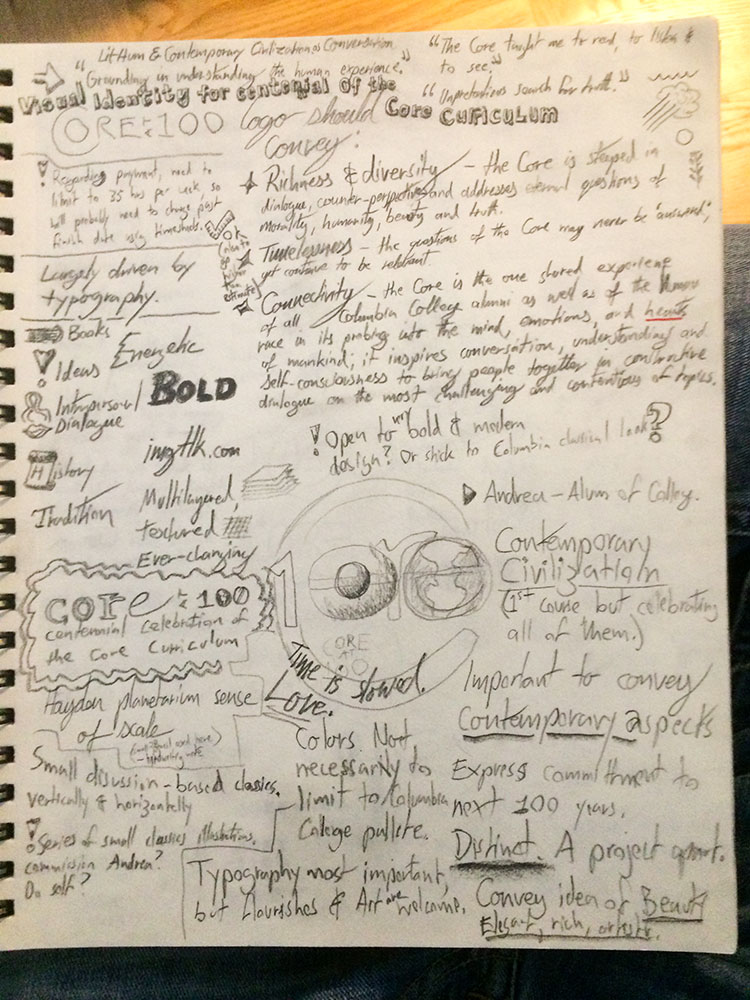 Lit Hum & Contemporary Civilization as Conversation
"Grounding in understanding the human experience."
"The Core taught me to read, to listen &
to see."
"Unpretentious search for truth."
Visual Identity for centenial of the
Core Curiculum
CORE AT 100
logo should
Convey:
! Regarding payment, need to
limit to 35 hrs per week so
will probably need to change past
finish date using timesheets.
OK
Richness & diversity – the Core is steeped in
dialogue, counter-perspectives and addresses eternal questions of
morality, humanity, beauty and truth.
Timelessness – the questions of the Core may never be "answered",
yet continue to be relevant.
Connectivity – the Core is the one shared experience
of all Columbia College alumni as well as of the human
race in its probing into the mind, emotions, and hearts
of mankind; it inspires conversation, understanding and
self-consciousness to bring people together in constructive
dialogue on the most challenging and contentious of topics.
Largely driven by
typography.
Books
! Ideas
Energetic
BOLD
Interpersonal
Dialogue
imgtlk.com
History
Tradition
Multilayered,
textured
Ever-changing
! Open to very bold & modern
design? Or stick to Columbia classical look?
Andrea – Alum of College.
100
CORE
AT
100
Contemporary
Civilization
(1st course but celebrating
all of them.)
CORE AT 100
centennial celebration of
the Core Curriculum
Time is slowed.
Love.
Hayden planetarium sense
of scale
Important to convey
Contemporary aspects
Colors. Not
necessarily to
limit to Columbia
College pallete.
Small discussion-based classics.
vertically & horizontally
Express commitment to
next 100 years.
! Series of small classics illustrations.
commission Andrea?
Do self?
Distinct. A project apart.
Typography most important,
but flourishes & Art are welcome.
Convey idea of Beauty
Elegant, rich, artistic.